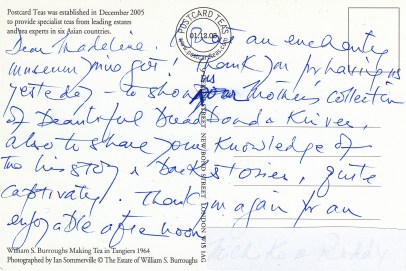 Postcard Teas was established in December 2005
to provide specialist teas from leading estates
and tea experts in six Asian countries.
POSTCARD TEAS
01.12.05
Dear Madeleine. What an enchanting
museum you got! Thank you for having us
yesterday – to show us your mother's collection
of Beautiful Breadboards & Knives,
also to share your knowledge of
the history & back stories, quite
captivating. Thank you again for an
enjoyable afternoon
STREET NEW BOND STREET LONDON W1S 1AG
William S. Burroughs Making Tea in Tangiers 1964
Photographed by Ian Sommerville © The Estate of William S. Burroughs